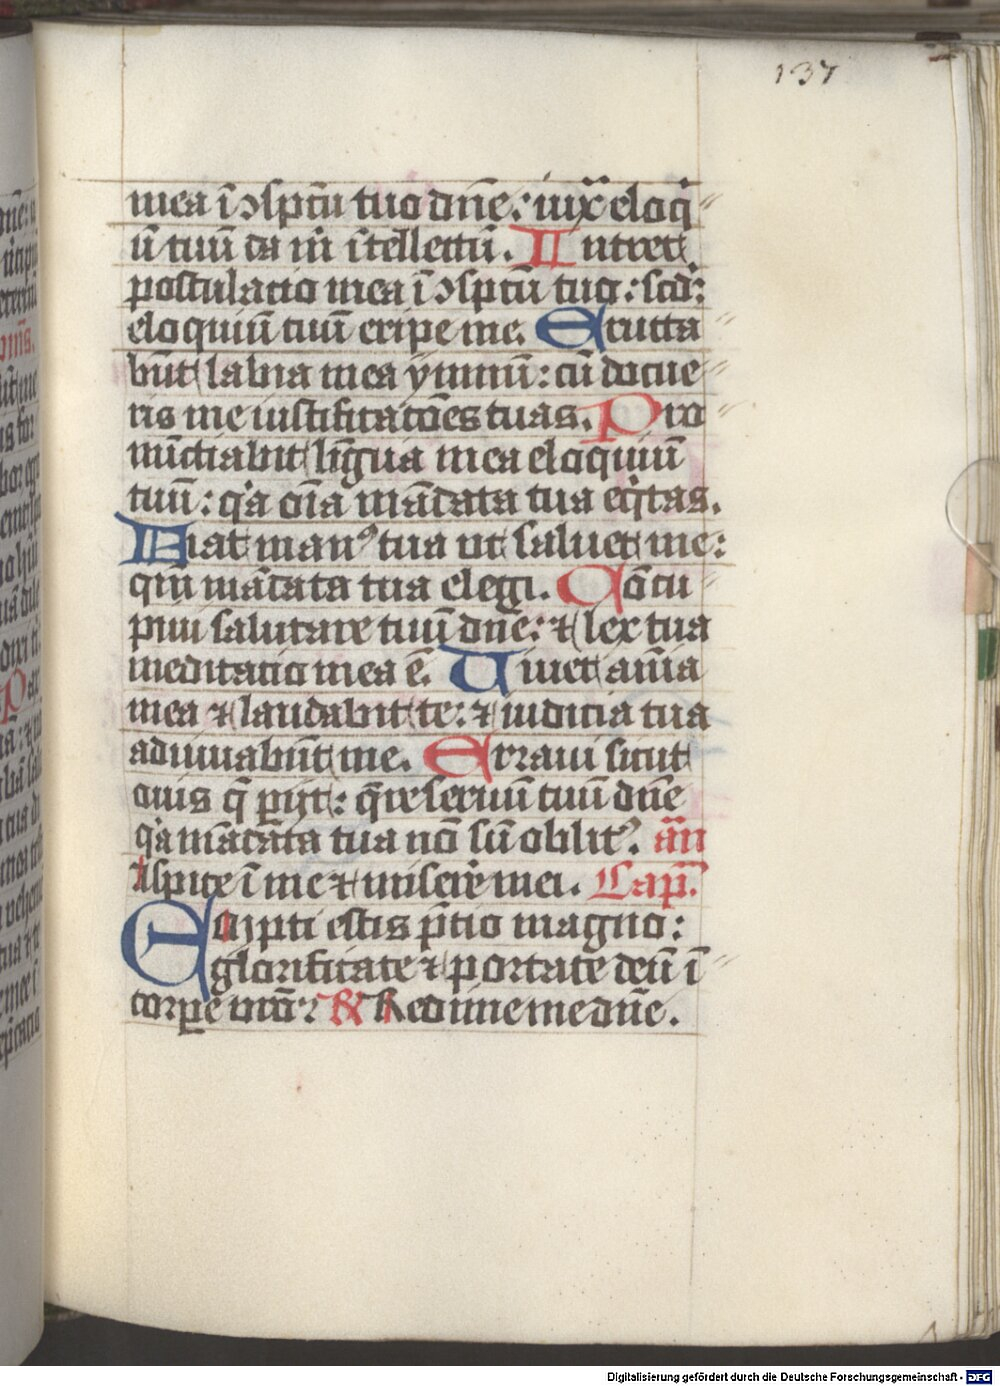 137
mea ī ↄspc̄tu tuo dn̄e: iux̄ eloq̄
ū tuū da m̄ ītellectū. Intret
postulacio mea ī ↄspc̄tū tuo: scd̄:
eloquiū tuū eripe me. Eructa
būt labia mea ymnū: cū docue
ris me iustificacōes tuas. Pro
nūciabit lingua mea eloquiū
tuū: q̄a om̄ia mādata tua eq̄tas.
Fiat manꝰ tua ut saluet me:
qm̄ mādata tua elegi. Cōcu
piui salutare tuū dn̄e: ⁊ lex tua
meditacio mea ē. Uiuet anīa
mea ⁊ laudabit te: ⁊ iudicia tua
adiuuabūt me. Erraui sicut
ouis q̄ ꝑijt: q̄re seruū tuū dn̄e
q̄a mādata tua nō sū oblitꝰ. an̄
Aspice ī me ⁊ miserēre mei. Cap̄.
Empti estis p̄tio magno:
glorificate ⁊ portate deū ī
corꝑe vr̄o. ℟ Redime me dn̄e.
Digitalisierung gefördert durch die Deutsche Forschungsgemeinschaft - DFG